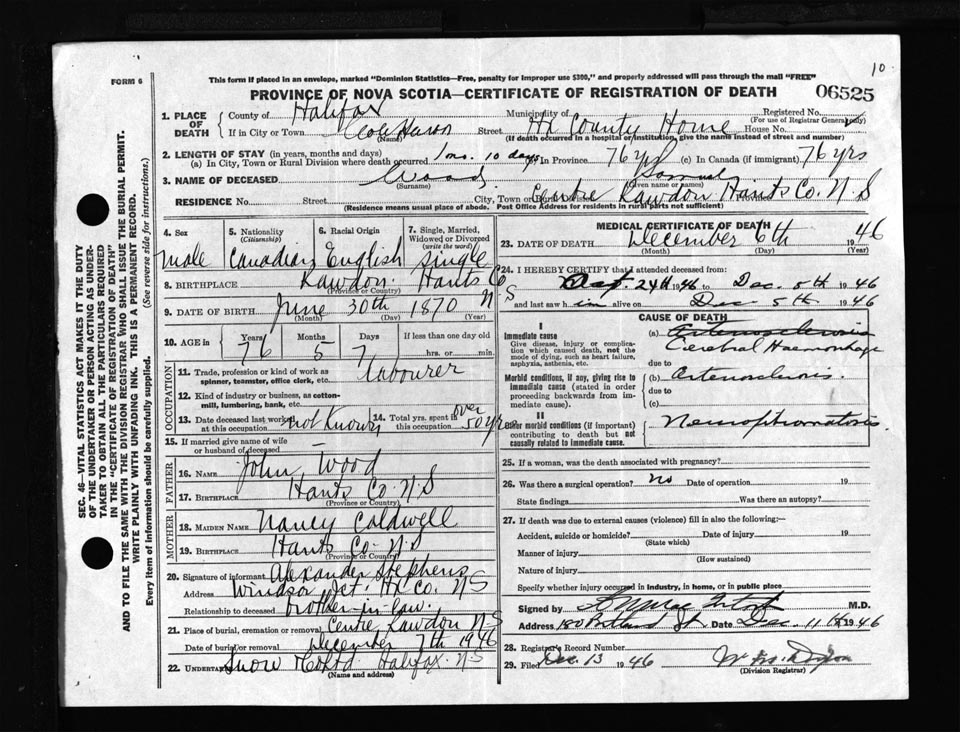 10.
FORM 6
This form if placed in an envelope, marked "Dominion Statistics—Free, penalty for improper use $300," and properly addressed will pass through the mail "FREE"
PROVINCE OF NOVA SCOTIA—CERTIFICATE OF REGISTRATION OF DEATH
06525
SEC. 46- VITAL STATISTICS ACT MAKES IT THE DUTY
OF THE UNDERTAKER OR PERSON ACTING AS UNDER-
TAKER TO OBTAIN ALL THE PARTICULARS REQUIRED
IN THE "CERTIFICATE OF REGISTRATION OF DEATH"
AND TO FILE THE SAME WITH THE DIVISION REGISTRAR WHO SHALL ISSUE THE BURIAL PERMIT.
WRITE PLAINLY WITH UNFADING INK. THIS IS A PERMANENT RECORD.
Every item of information should be carefully supplied. (See reverse side for instructions.)
1. PLACE OF DEATH
County of Halifax Municipality of Registered No.
(For use of Registrar General only)
If in City or Town Cole Harbor Street Hx County Home House No.
(Name) (If death occurred in a hospital or institution, give name instead of street and number)
2. LENGTH OF STAY (in years, months and days)
(a) In City, Town or Rural Division where death occurred 10 days In Province 76 yrs (c) In Canada (if immigrant) 76 yrs
3. NAME OF DECEASED Wood Samuel
(Surname) (Given name or names)
RESIDENCE No. Street City, Town or Rural Centre Rawdon Hants Co. N.S
(Residence means usual place of abode. Post Office Address for residents in rural parts not sufficient)
4. Sex
male
5. Nationality
(Citizenship)
Canadian
6. Racial Origin
English
7. Single, Married,
Widowed or Divorced
(write the word)
Single
8. BIRTHPLACE Rawdon Hants Co N S
(Province or Country)
9. DATE OF BIRTH June 30th 1870
(Month) (Day) (Year)
10. AGE in Years Months Days If less than one day old
76 5 7 hrs. or min.
OCCUPATION
11. Trade, profession or kind of work as
spinner, teamster, office clerk, etc. Labourer
12. Kind of industry or business, as cotton-
mill, lumbering, bank, etc.
13. Date deceased last worked
at this occupation not known
14. Total yrs. spent in
this occupation over 50 yrs
15. If married give name of wife
or husband of deceased
FATHER
16. NAME John Wood
17. BIRTHPLACE Hants Co. N.S
(Province or Country)
MOTHER
18. MAIDEN NAME Nancy Caldwell
19. BIRTHPLACE Hants Co. N.S
(Province or Country)
20. Signature of informant Alexander Stephens
Address Windsor Jct. Hx Co. NS
Relationship to deceased brother-in-law.
21. Place of burial, cremation or removal Centre Rawdon N S
Date of burial or removal December 7th 1946
22. UNDERTAKER Snow & Co Ltd Halifax NS
(Name and address)
MEDICAL CERTIFICATE OF DEATH
23. DATE OF DEATH December 6th 1946
(Month) (Day) (Year)
24. I HEREBY CERTIFY that I attended deceased from:
24th 1946 to Dec. 5th 1946
and last saw him alive on Dec 5th 1946
CAUSE OF DEATH
I
Immediate cause
Give disease, injury or complica-
tion which caused death, not the
mode of dying, such as heart failure,
asphyxia, asthenia, etc.
(a) Arteriosclerosis
Cerebral Haemorrhage
due to
Morbid conditions, if any, giving rise to
immediate cause (stated in order
proceeding backwards from im-
mediate cause).
(b) Arteriosclerosis.
due to
(c)
II
Other morbid conditions (if important)
contributing to death but not
causally related to immediate cause.
25. If a woman, was the death associated with pregnancy?
26. Was there a surgical operation? no Date of operation 19
State findings Was there an autopsy?
27. If death was due to external causes (violence) fill in also the following:—
Accident, suicide or homicide? Date of injury 19
(State which)
Manner of injury
(How sustained)
Nature of injury
Specify whether injury occurred in industry, in home, or in public place
Signed by M.D.
Address 180 Portland St Date Dec. 11th 1946
28. Registrar's Record Number
29. Filed Dec 13 1946
(Division Registrar)